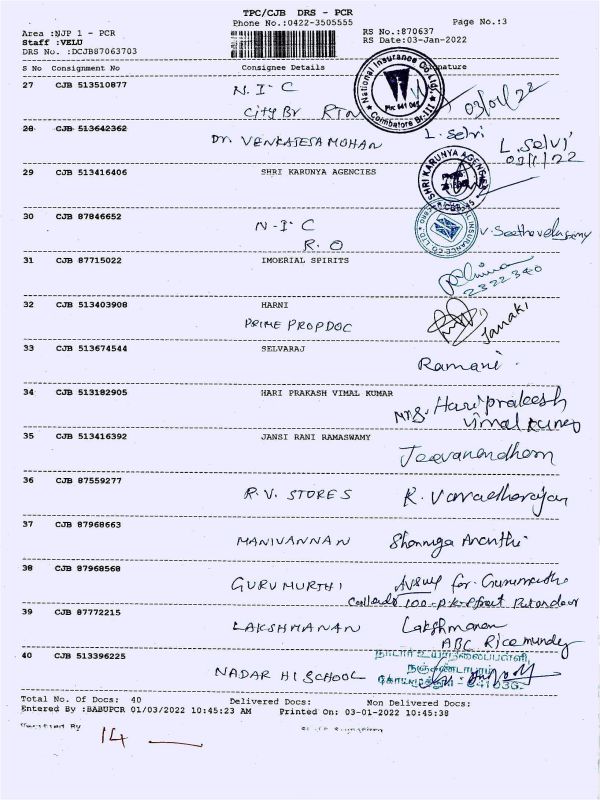 TPC/CJB DRS - PCR
Phone No.:0422-3505555
Page No.:3
Area :NJP 1 - PCR
RS No.:870637
Staff :VELU
RS Date:03-Jan-2022
DRS No. :DCJB87063703
S No Consignment No Consignee Details Signature
27 CJB 513510877 N.I.C
City Br RTN
National Insurance Co. Ltd.
Coimbatore Br-III
03/01/22
28 CJB 513642362 Dr. VENKATESA MOHAN L. Selvi
L. Selvi
03/1/22
29 CJB 513416406 SHRI KARUNYA AGENCIES
SHRI KARUNYA AGENCIES
30 CJB 87846652 N-I-C
R.O
31 CJB 87715022 IMOERIAL SPIRITS
2322340
32 CJB 513403908 HARNI
PRIME PROPDOC Janaki
33 CJB 513674544 SELVARAJ
Ramani.
34 CJB 513182905 HARI PRAKASH VIMAL KUMAR
35 CJB 513416392 JANSI RANI RAMASWAMY
Jeevanandham
36 CJB 87559277
R.V. STORES
37 CJB 87968663
MANIVANNAN
38 CJB 87968568
GURUMURTHI
39 CJB 87772215
LAKSHMANAN Lakshmanan
ABC Rice mundy
40 CJB 513396225
NADAR HI SCHOOL
Total No. Of Docs: 40 Delivered Docs: Non Delivered Docs:
Entered By :BABUPCR 01/03/2022 10:45:23 AM Printed On: 03-01-2022 10:45:38
Verified By
14